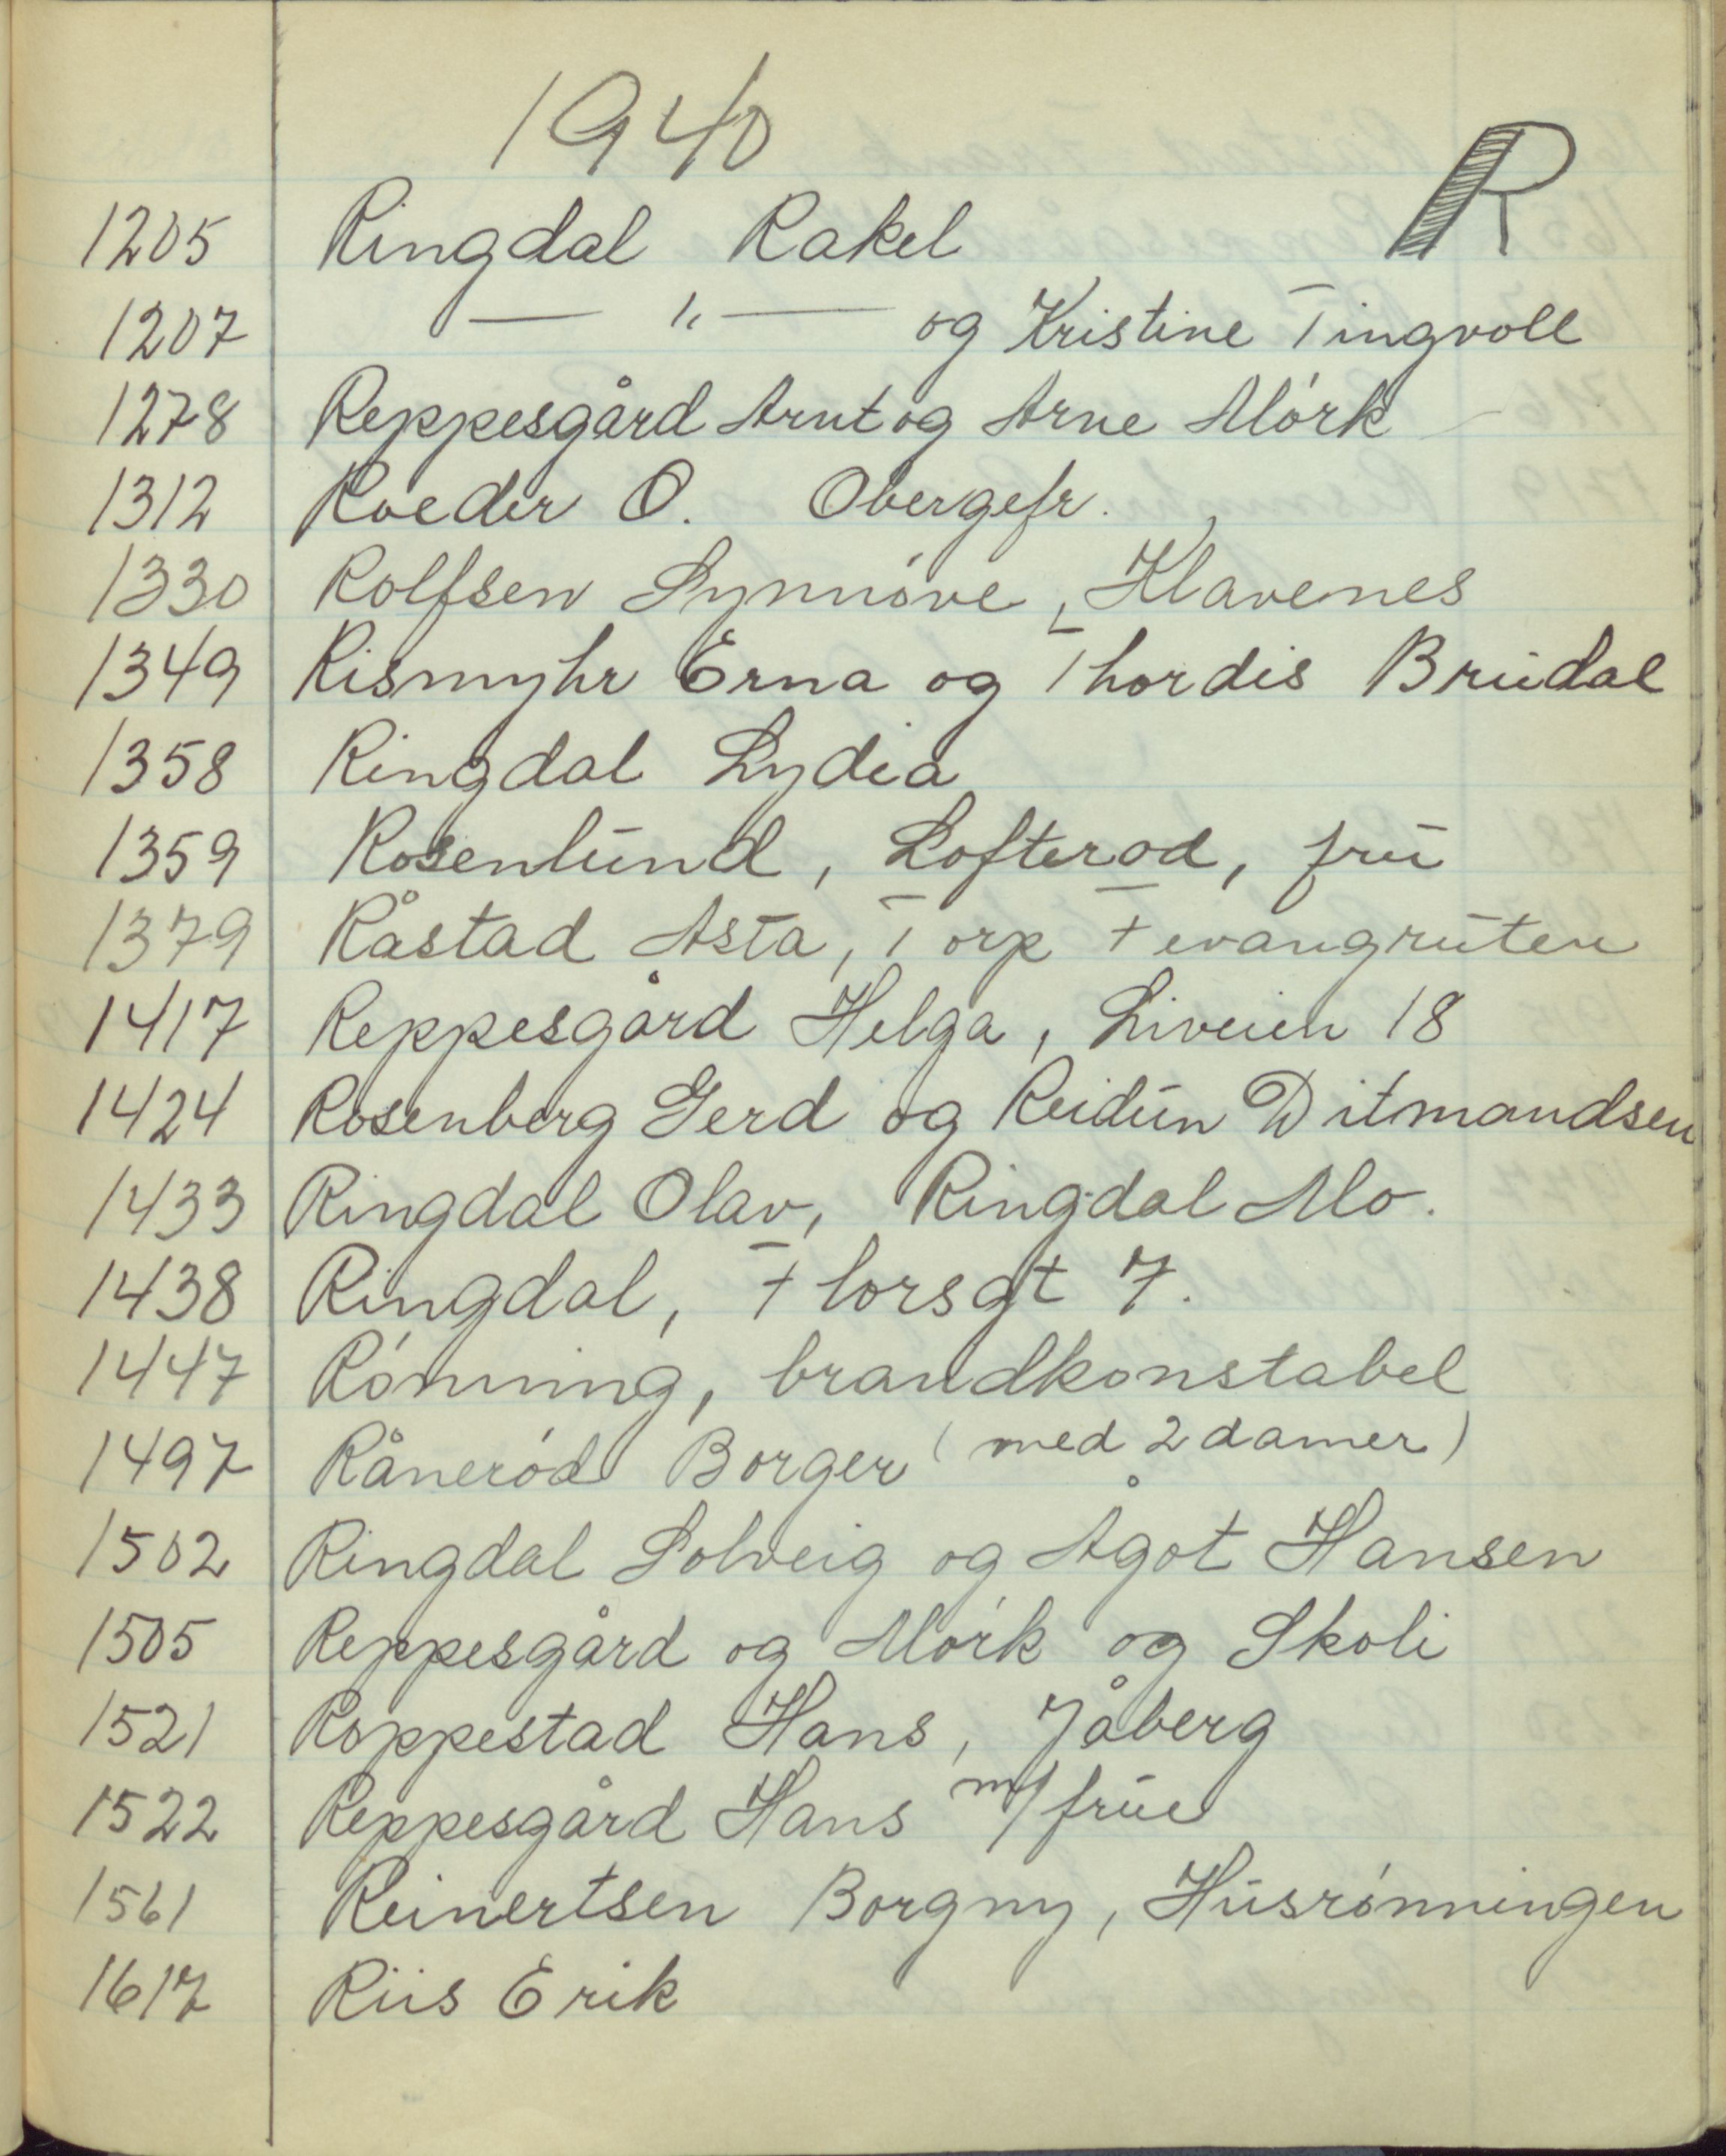 1940
R
1205 Ringdal Rakel
1207 — 〃 — og Kristine Tingvoll
1278 Reppesgård Arnt og Arne Mörk
1312 Roeder O. Obergefr.
1330 Rolfsen Synnöve, Klavenes
1349 Rismyhr Erna og Thordis Brudal
1358 Ringdal Lydia
1359 Rosenlund, Lofterod, fru
1379 Råstad Asta, Torp Fevangruten
1417 Reppesgård Helga, Liveien 18
1424 Rosenberg Gerd og Reidun Ditmandsen
1433 Ringdal Olav, Ringdal Mo.
1438 Ringdal, Thorsgt 7.
1447 Rönning, brandkonstabel
1497 Råneröd Borger (med 2 damer)
1502 Ringdal Solveig og Ågot Hansen
1505 Reppesgård og Mörk og Skoli
1521 Roppestad Hans, Jåberg
1522 Reppesgård Hans m/frue
1561 Reinertsen Borgny, Husrönningen
1617 Riis Erik